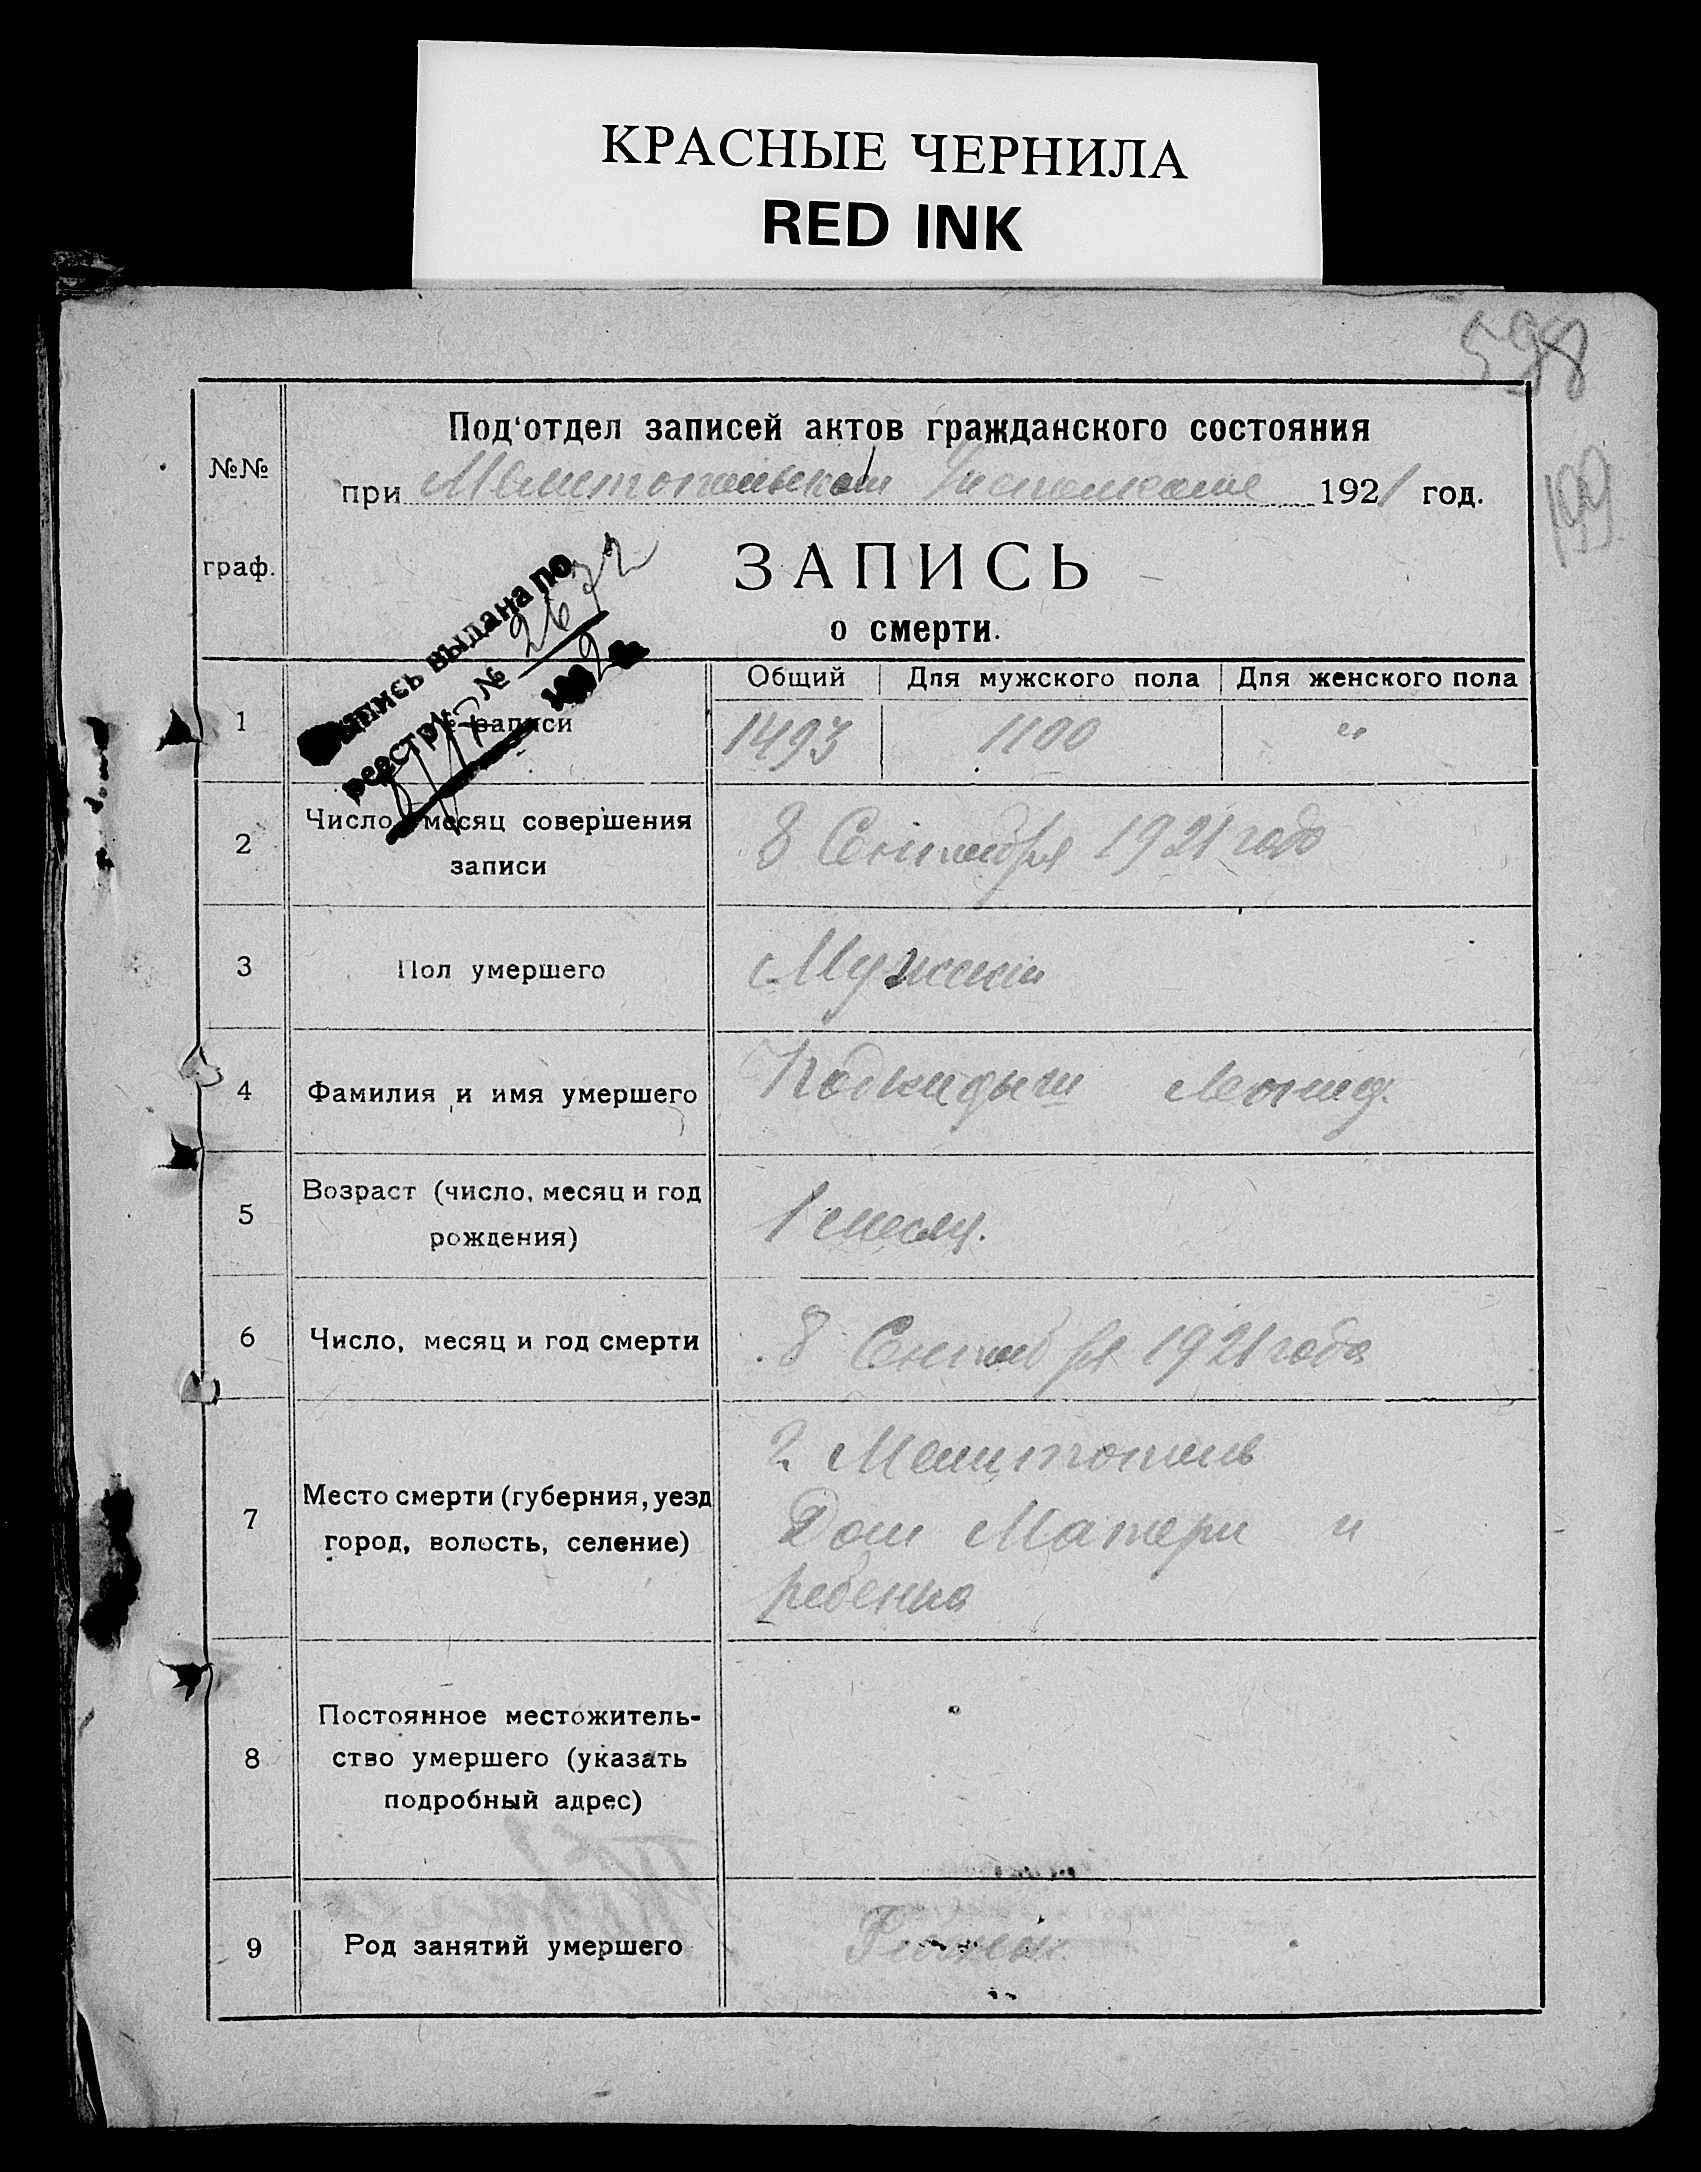 КРАСНЫЕ ЧЕРНИЛА
RED INK
598
199
Под'отдел записей актов гражданского состояния
№№
граф.
при Мелитопольском 1921 год.
ЗАПИСЬ
о смерти.
Запись выдана по
реестру № 2672
Общий Для мужского пола Для женского пола
1 записи 1493 1100 "
2 Число месяц совершения
записи
8 Сентября 1921 года
3 Пол умершего Мужской
4 Фамилия и имя умершего Подкидыш Леонид.
5 Возраст (число, месяц и год
рождения)
1 месяц.
6 Число, месяц и год смерти 8 Сентября 1921 года
7 Место смерти (губерния, уезд
город, волость, селение)
г. Мелитополь
Дом Матери и
ребенка
8 Постоянное местожитель-
ство умершего (указать
подробный адрес)
9 Род занятий умершего